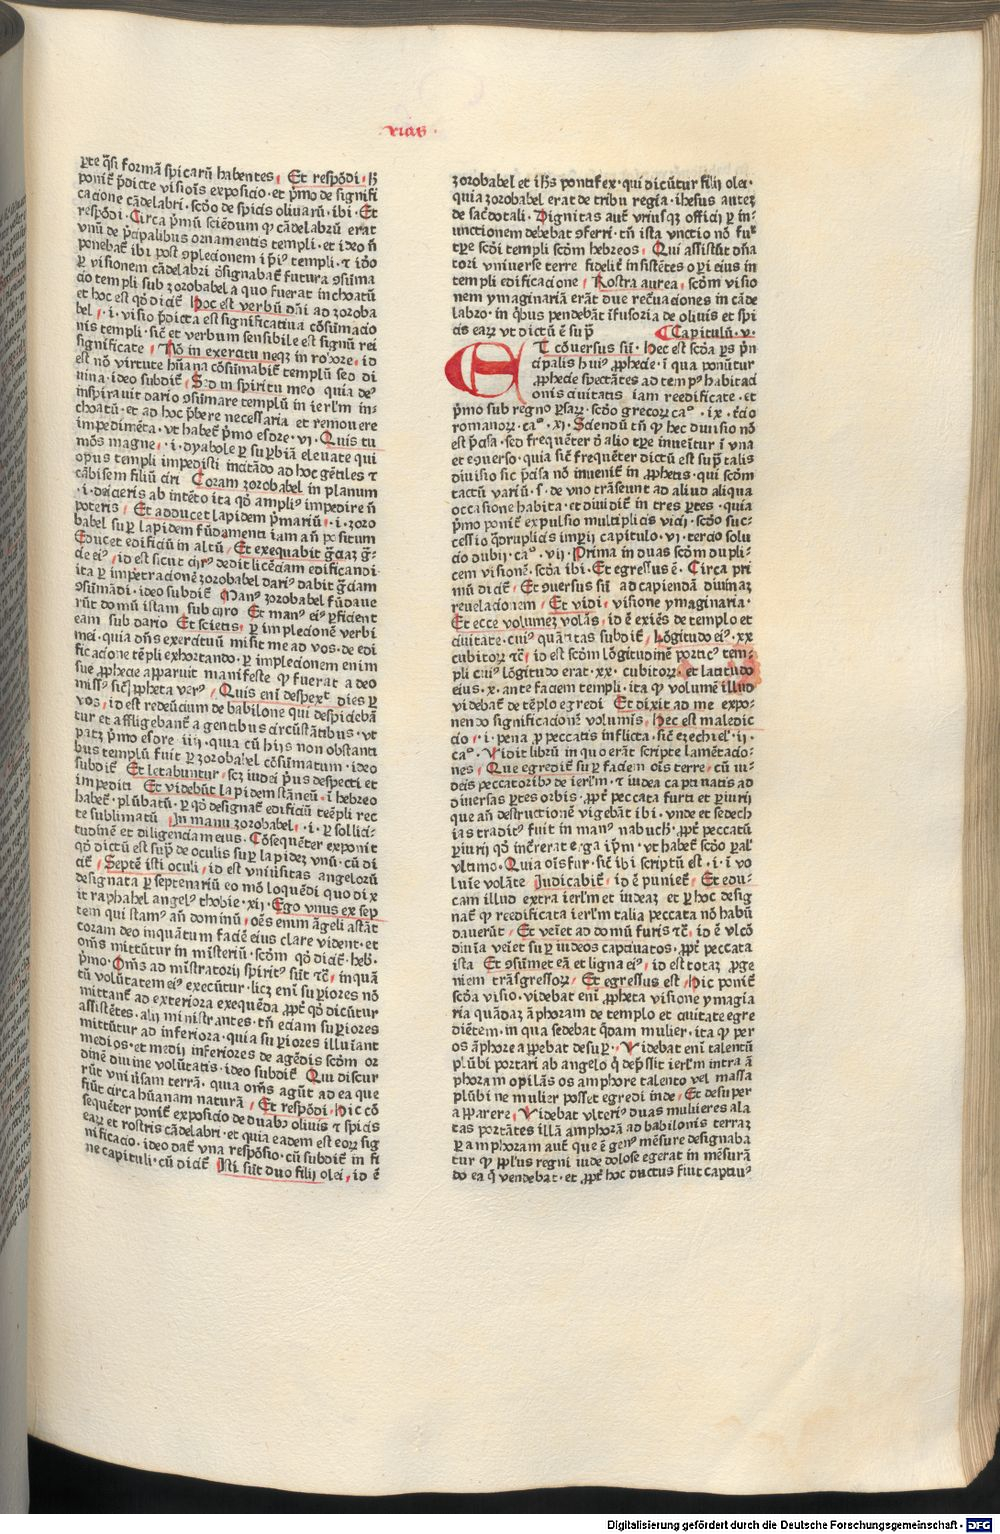 rias
ꝑte q̄si formā spicarū habentes. Et respōdi. h̄
ponit᷑ p̄dicte visiōis exposicio. et pͥmo de signifi
cacione cādelabri. scd̄o de spicis oliuarū. ibi. Et
respōdi. Circa pͥmū sciēdum ꝙ cādelabrū erat
vnū de pͥncipalibus ornamentis templi. et ideo n̄
ponebat᷑ ibi post ꝯplecionem ipͥius templi. ⁊ iō
ꝑ visionem cādelabri ꝯsignabat᷑ futura ꝯsūma
cio templi sub zorobabel a quo fuerat inchoatū
et hoc est qd̄ dicit᷑ Hoc est verbū dn̄i ad zoroba
bel. .i. visio p̄dicta est significatiua cōsūmacio
nis templi. sic᷑ et verbum sensibile est signū rei
significate. Nō in exercitu neqꝫ in robore. id
est nō virtute hūana cōsūmabit᷑ templū sed di
uina. ideo subdit᷑. Sꝫd in spiritu meo quia deꝰ
inspirauit dario ꝯsūmare templū in ierl'm in-
choatū. et ad hoc p̄bere necessaria et remouere
impedimēta. vt habet᷑ pͥmo esdre. vj. Quis tu
mōs magne. .i. dyabole ꝑ suꝑbiā eleuate qui
opus templi impedisti incitādo ad hoc gētiles ⁊
cābisem filiū ciri Coram zorobabel in planum
.i. deiceris ab intēto ita qd̄ ampliꝰ impedire n̄
poteris. Et adducet lapidem pͥmariū. .i. zoro
babel suꝑ lapidem fūdamenti iam an̄ positum
Educet edificiū in altū. Et exequabit gͣciaꝫ gͣ-
cie eiꝰ. id est sicut cirꝰ dedit licēciam edificandi
ita ꝑ impetracionē zorobabel dariꝰ dabit gͣciam
ꝯsūmādi. ideo subdit᷑ Manꝰ zorobabel fūdaue
rūt domū istam sub ciro Et manꝰ eiꝰ ꝑficient
eam sub dario Et scietis. ꝑ implecionē verbi
mei. quia dn̄s exercituū misit me ad vos. de edi
ficacione tēpli exhortando. ꝑ implecionem enim
sue ꝓphecie apparuit manifeste ꝙ fuerat a deo
missꝰ sic᷑ ꝓpheta verꝰ. Quis eni᷑ despexit dies ꝑ
vos. id est redeūcium de babilone qui despiciebā
tur et affligebant᷑ a gentibus circūstātibus. vt
patꝫ pͥmo esdre iiij. qua cū hijs non obstanti
bus templū fuit ꝑ zorobabel cōsūmatum. ideo
subdit᷑ Et letabuntur. scꝫ iudei pͥus despecti et
impediti Et videbūt lapidem stāneū. i᷑ hebreo
habet᷑. plūbatū. ꝑ qd̄ designat᷑ edificiū tēpli rec
te sublimatū In manu zorobabel. .i. ꝑ sollici-
tudinē et diligenciam eius. Cōsequēter exponit
qd̄ dictū est suꝑ de oculis suꝑ lapideꝫ vnū. cū di
cit᷑. Septē isti oculi. id est vniuersitas angelorū
designata ꝑ septenariū eo mō loquēdi quo dix
it raphahel angelꝰ thobie. xij. Ego vnus ex sep
tem qui stamꝰ an̄ dominū. oēs enim āgeli astāt
coram deo inquātum faciē eius clare vident. et
om̄s mittūtur in misteriū. scd̄m qd̄ dicit᷑. heb.
pͥmo. Om̄s ad mīstratorij spiritꝰ sūt ⁊c̄. inquā
tū volūtatem eiꝰ execūtur. licꝫ eni᷑ suꝑiores nō
mittant᷑ ad exteriora exequēda ꝓpt᷑ qd̄ dicūtur
assistētes. alij ministrantes. tn̄ eciam suꝑiores
mittūtur ad inferiora. quia suꝑiores illuīant
medios. et medij inferiores de agēdis scd̄m or
dinē diuine volūtatis. ideo subdit᷑ Qui discur
rūt vniūsam terrā. quia om̄s agūt ad ea que
fiūt circa hūanam naturā. Et respōdi. Hic cō
sequēter ponit᷑ exposicio de duabꝰ oliuis ⁊ spicis
eaꝝ et rostris cādelabri. et quia eadem est eoꝝ sig
nificacio. ideo dat᷑ vna respōsio. cū subdit᷑ in fi
ne capituli. cū dicit᷑ Isti sūt duo filij olei. id ē
zorobabel et ih̄s pontifex. qui dicūtur filij olei.
quia zorobabel erat de tribu regia. ihesus auteꝫ
de sac᷑dotali. Dignitas aut᷑ vtriusqꝫ officij ꝑ in-
unctionem debebat ꝯferri. tn̄ ista vnctio nō fuͥt
tꝑe scd̄i templi scd̄m hebreos. Qui assistūt dn̄a
tori vniuerse terre fidelit᷑ insistētes oꝑi eius in
templi edificacione. Rostra aurea. scd̄m visio
nem ymaginariā erāt due rec᷑uaciones in cāde
labro. in qͥbus pendebāt īfusoria de oliuis et spi
cis eaꝝ vt dictū ē sup̄ Capitulū. v.
ET cōuersus sū. Hec est scd̄a ꝑs pͥn
cipalis huiꝰ ꝓphecie. i᷑ qua ponūtur
ꝓphecie spectātes ad tempꝰ habitaci
onis ciuitatis iam reedificate. et
pͥmo sub regno ꝑsaꝝ. scd̄o grecoꝝ caͦ. ix. t᷑cio
romanoꝝ. caͦ. xj. Sciendū tn̄ ꝙ hec diuisio nō
est p̄cisa. sed frequēter d᷑ alio tꝑe inueītur i᷑ vna
et eꝯuerso. quia sic᷑ frequēter dictū est sup̄ talis
diuisio sic p̄cisa nō inuenit᷑ in ꝓphetis. qui scd̄m
tactū variū. s. de vno trāseunt ad aliud aliqua
occasione habita. et diuidit᷑ in tres ꝑtes. quia
pͥmo ponit᷑ expulsio multiplicis vicij. scd̄o suc-
cessio qͣdruplicis imꝑij capitulo. vj. tercio solu
cio dubij. caͦ. vij. Prima in duas scd̄m dupli-
cem visionē. scd̄a ibi. Et egressus ē. Circa pri
mū dicit᷑. Et ꝯuersus sū ad capiendā diuinaꝫ
reuelacionem. Et vidi. visione ymaginaria.
Et ecce volumeꝫ volās. id ē exiēs de templo et
ciuitate. cuiꝰ quātitas subdit᷑. Lōgitudo eiꝰ. xx
cubitoꝝ ⁊c̄. id est scd̄m lōgitudinē porticꝰ tem-
pli cuiꝰ lōgitudo erat. xx. cubitoꝝ. et latitudo
eius. x. ante faciem templi. ita ꝙ volumē illud
videbat᷑ de tēplo egredi Et dixit ad me expo-
nendo significacionē volumīs. Hec est maledic
cio. .i. pena ꝑ peccatis inflicta. sic᷑ ezechiel'. ij.
caͦ. Vidit librū in quo erāt scripte lamētacio-
nes. Que egredit᷑ suꝑ faciem oīs terre. cū iu-
deis peccatoribꝰ de ierl'm. ⁊ iudea captiuatis ad
diuersas ꝑtes orbis. ꝓpt᷑ peccata furti et ꝑiurij
que an̄ destructionē vigebāt ibi. vnde et sedech
ias traditꝰ fuit in manꝰ nabuch᷑. ꝓpt᷑ peccatū
ꝑiurij qd̄ inc᷑rerat erga ip̄m. vt habet᷑ scd̄o ꝑal'
vltimo. Quia oīs fur. sic᷑ ibi scriptū est. .i. i᷑ vo
luīe volāte Iudicabit᷑. id ē puniet᷑. Et edu-
cam illud extra ierl'm et iudeaꝫ et ꝑ hoc desig
nat᷑ ꝙ reedificata ierl'm talia peccata nō habū
dauerūt. Et veīet ad domū furis ⁊c̄. id ē vlcō
diuīa veīet suꝑ iudeos captiuatos. ꝓpt᷑ peccata
ista Et ꝯsūmet eā et ligna eiꝰ. id est totaꝫ ꝓge
niem trāsgressoꝝ. Et egressus est. Hic ponit᷑
scd̄a visio. videbat eni᷑ ꝓpheta visione ymagia
ria quādaꝫ āphoram de templo et ciuitate egre
diētem. in qua sedebat qͥdam mulier. ita ꝙ per
os āphore aꝑebat desuꝑ. Videbat eni᷑ talentū
plūbi portari ab angelo qͥ dep̄ssit ierl'm intra ā
phoram opilās os amphore talento vel massa
plūbi ne mulier posset egredi inde. Et desuper
apparere. Videbat vlteriꝰ duas mulieres ala
tas portātes illā amphorā ad babilonis terraꝫ
ꝑ amphoram aut᷑ que ē genꝰ mēsure designaba
tur ꝙ ppl'us regni iude dolose egerat in mēsurā
do ea qͥ vendebat. et ꝓpt᷑ hoc ductus fuit captiuꝰ
Digitalisierung gefördert durch die Deutsche Forschungsgemeinschaft - DFG